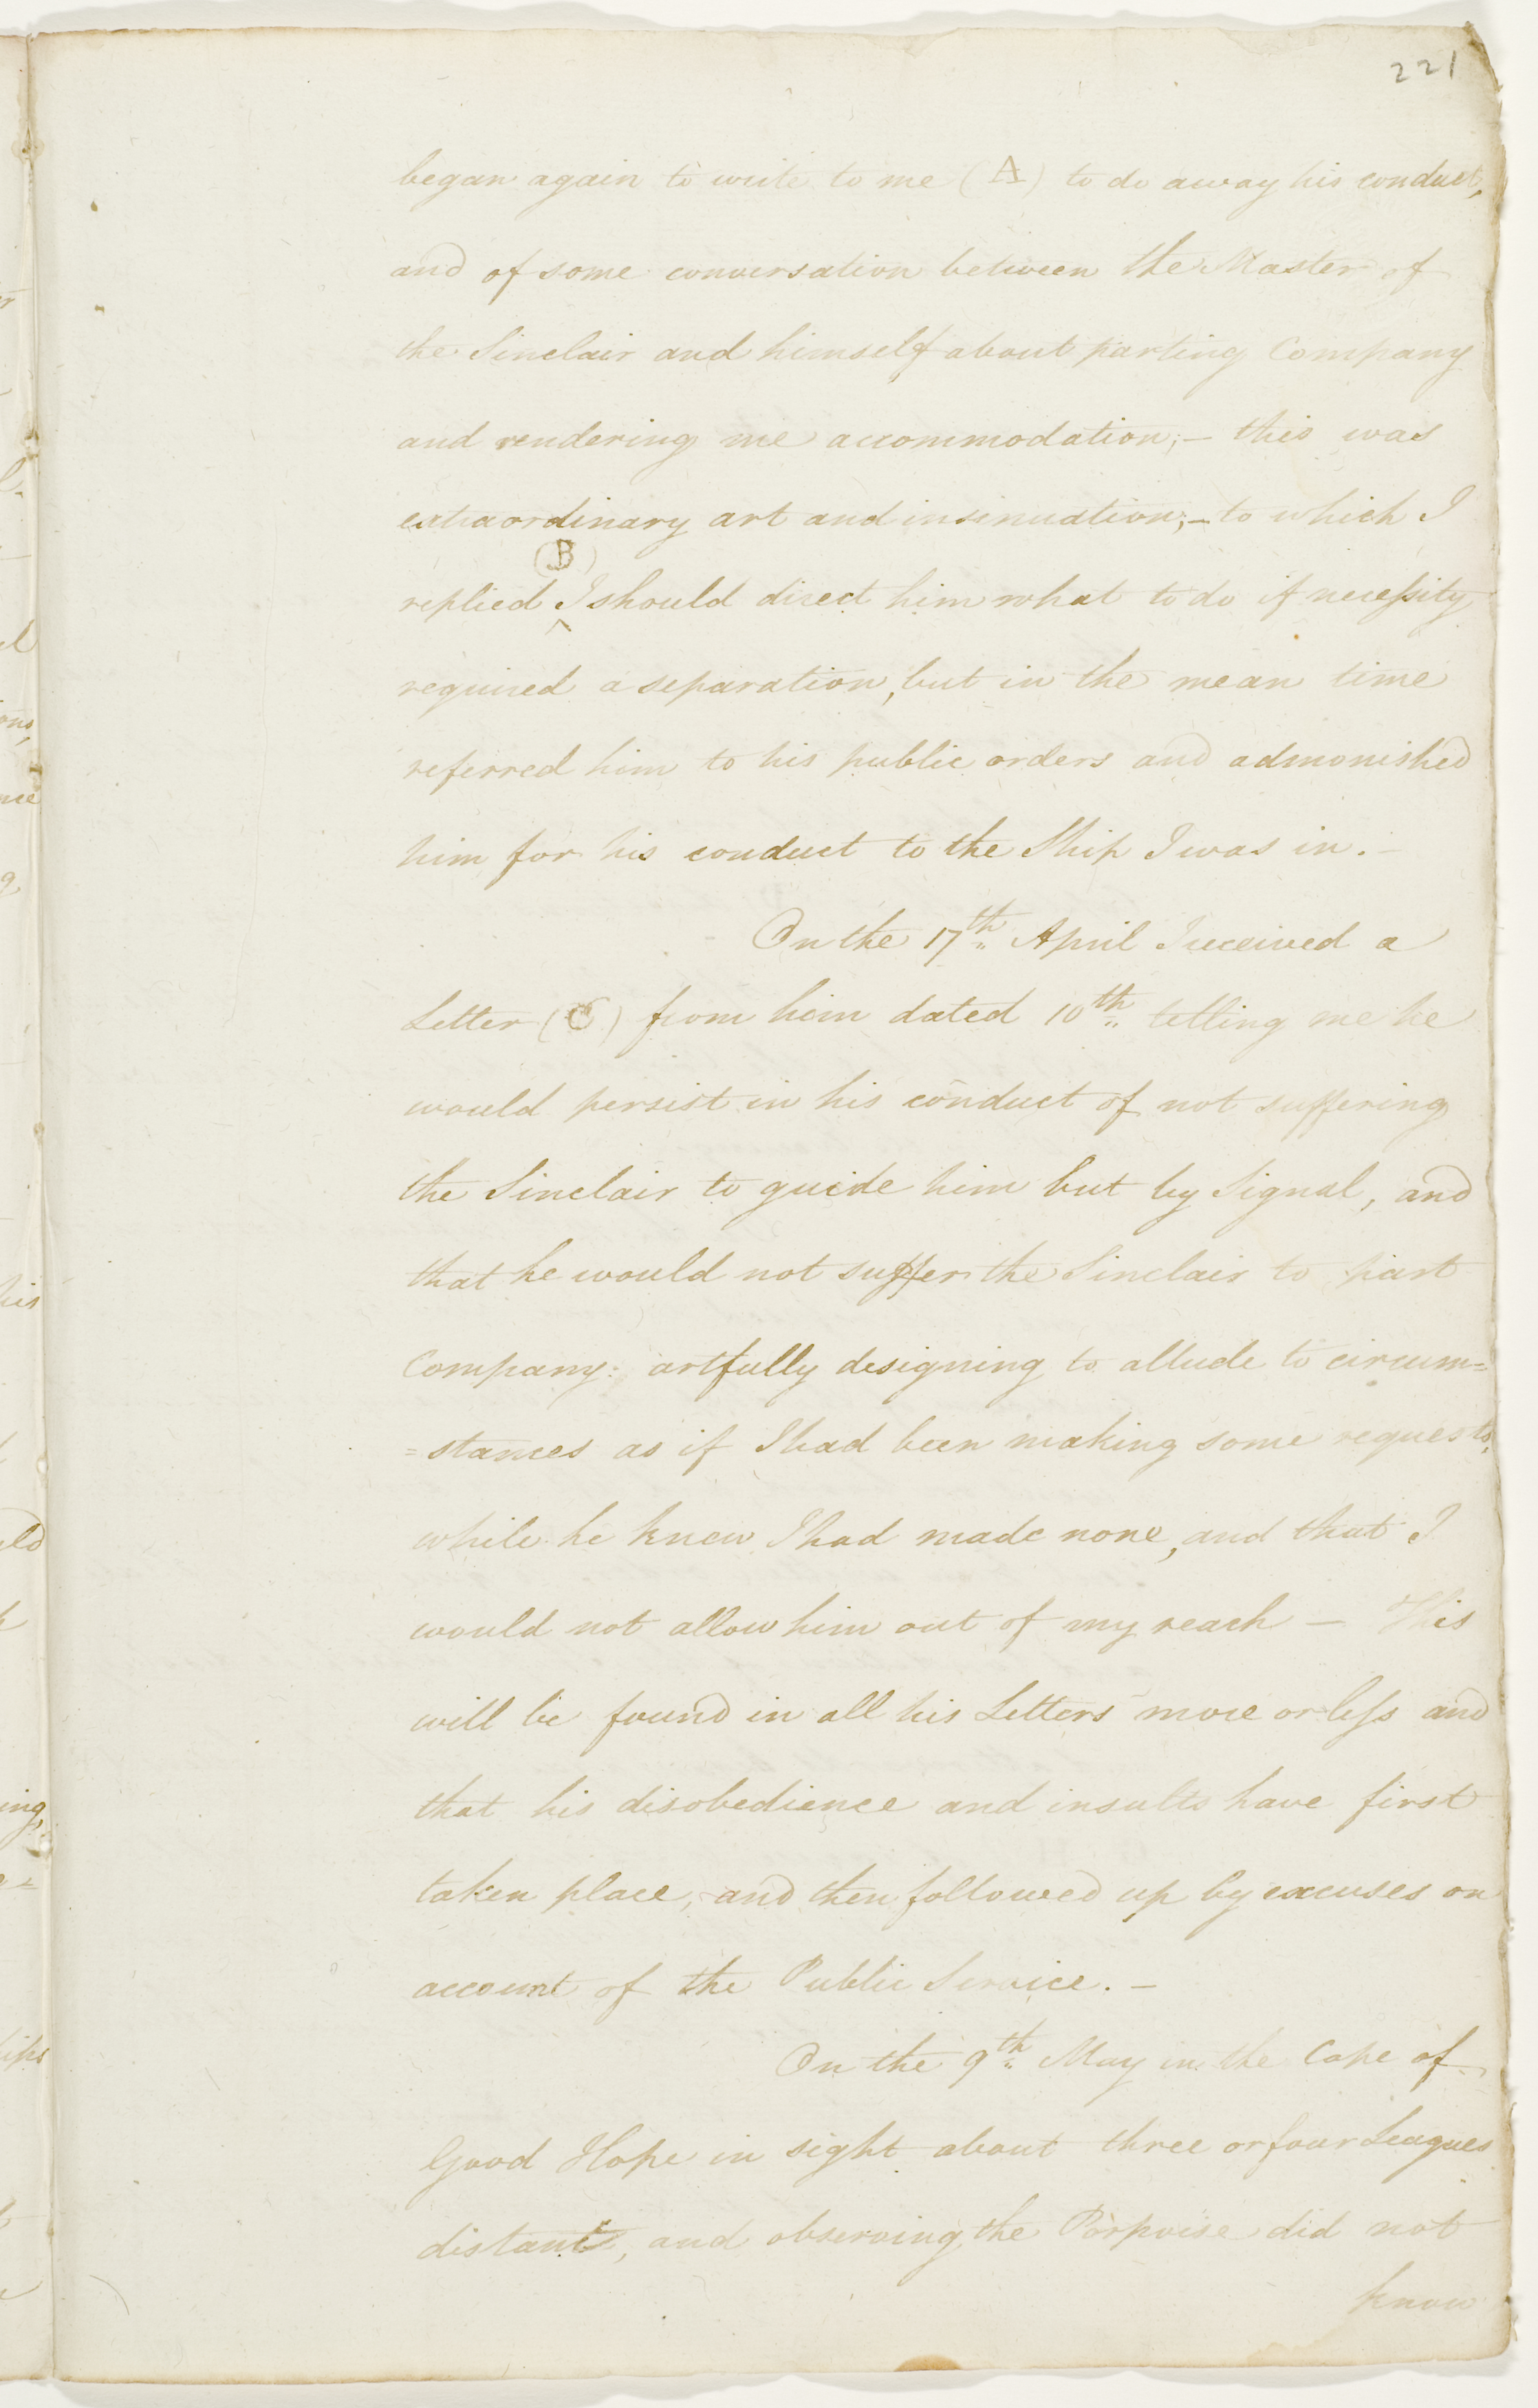 221
began again to write to me (A) to do away his conduct,
and of some conversation between the Master of
the Sinclair and himself about parting Company
and rendering me accommodation; – this was
extraordinary art and insinuation; – to which I
(B)
replied ^ I should direct him what to do if necessity
required a separation, but in the mean time
referred him to his public orders and admonished
him for his conduct to the Ship I was in. –
On the 17th April I received a
Letter (C) from him dated 10th telling me he
would persist in his conduct of not suffering
the Sinclair to guide him but by Signal, and
that he would not suffer the Sinclair to part
Company: artfully designing to allude to circum=
=stances as if I had been making some requests,
while he knew I had made none, and that I
would not allow him out of my reach – This
will be found in all his Letters more or less and
that his disobedience and insults have first
taken place, and then followed up by excuses on
account of the Public Service. –
On the 9th May in the Cape of
Good Hope in sight about three or four Leagues
distant, and observing the Porpoise did not
know